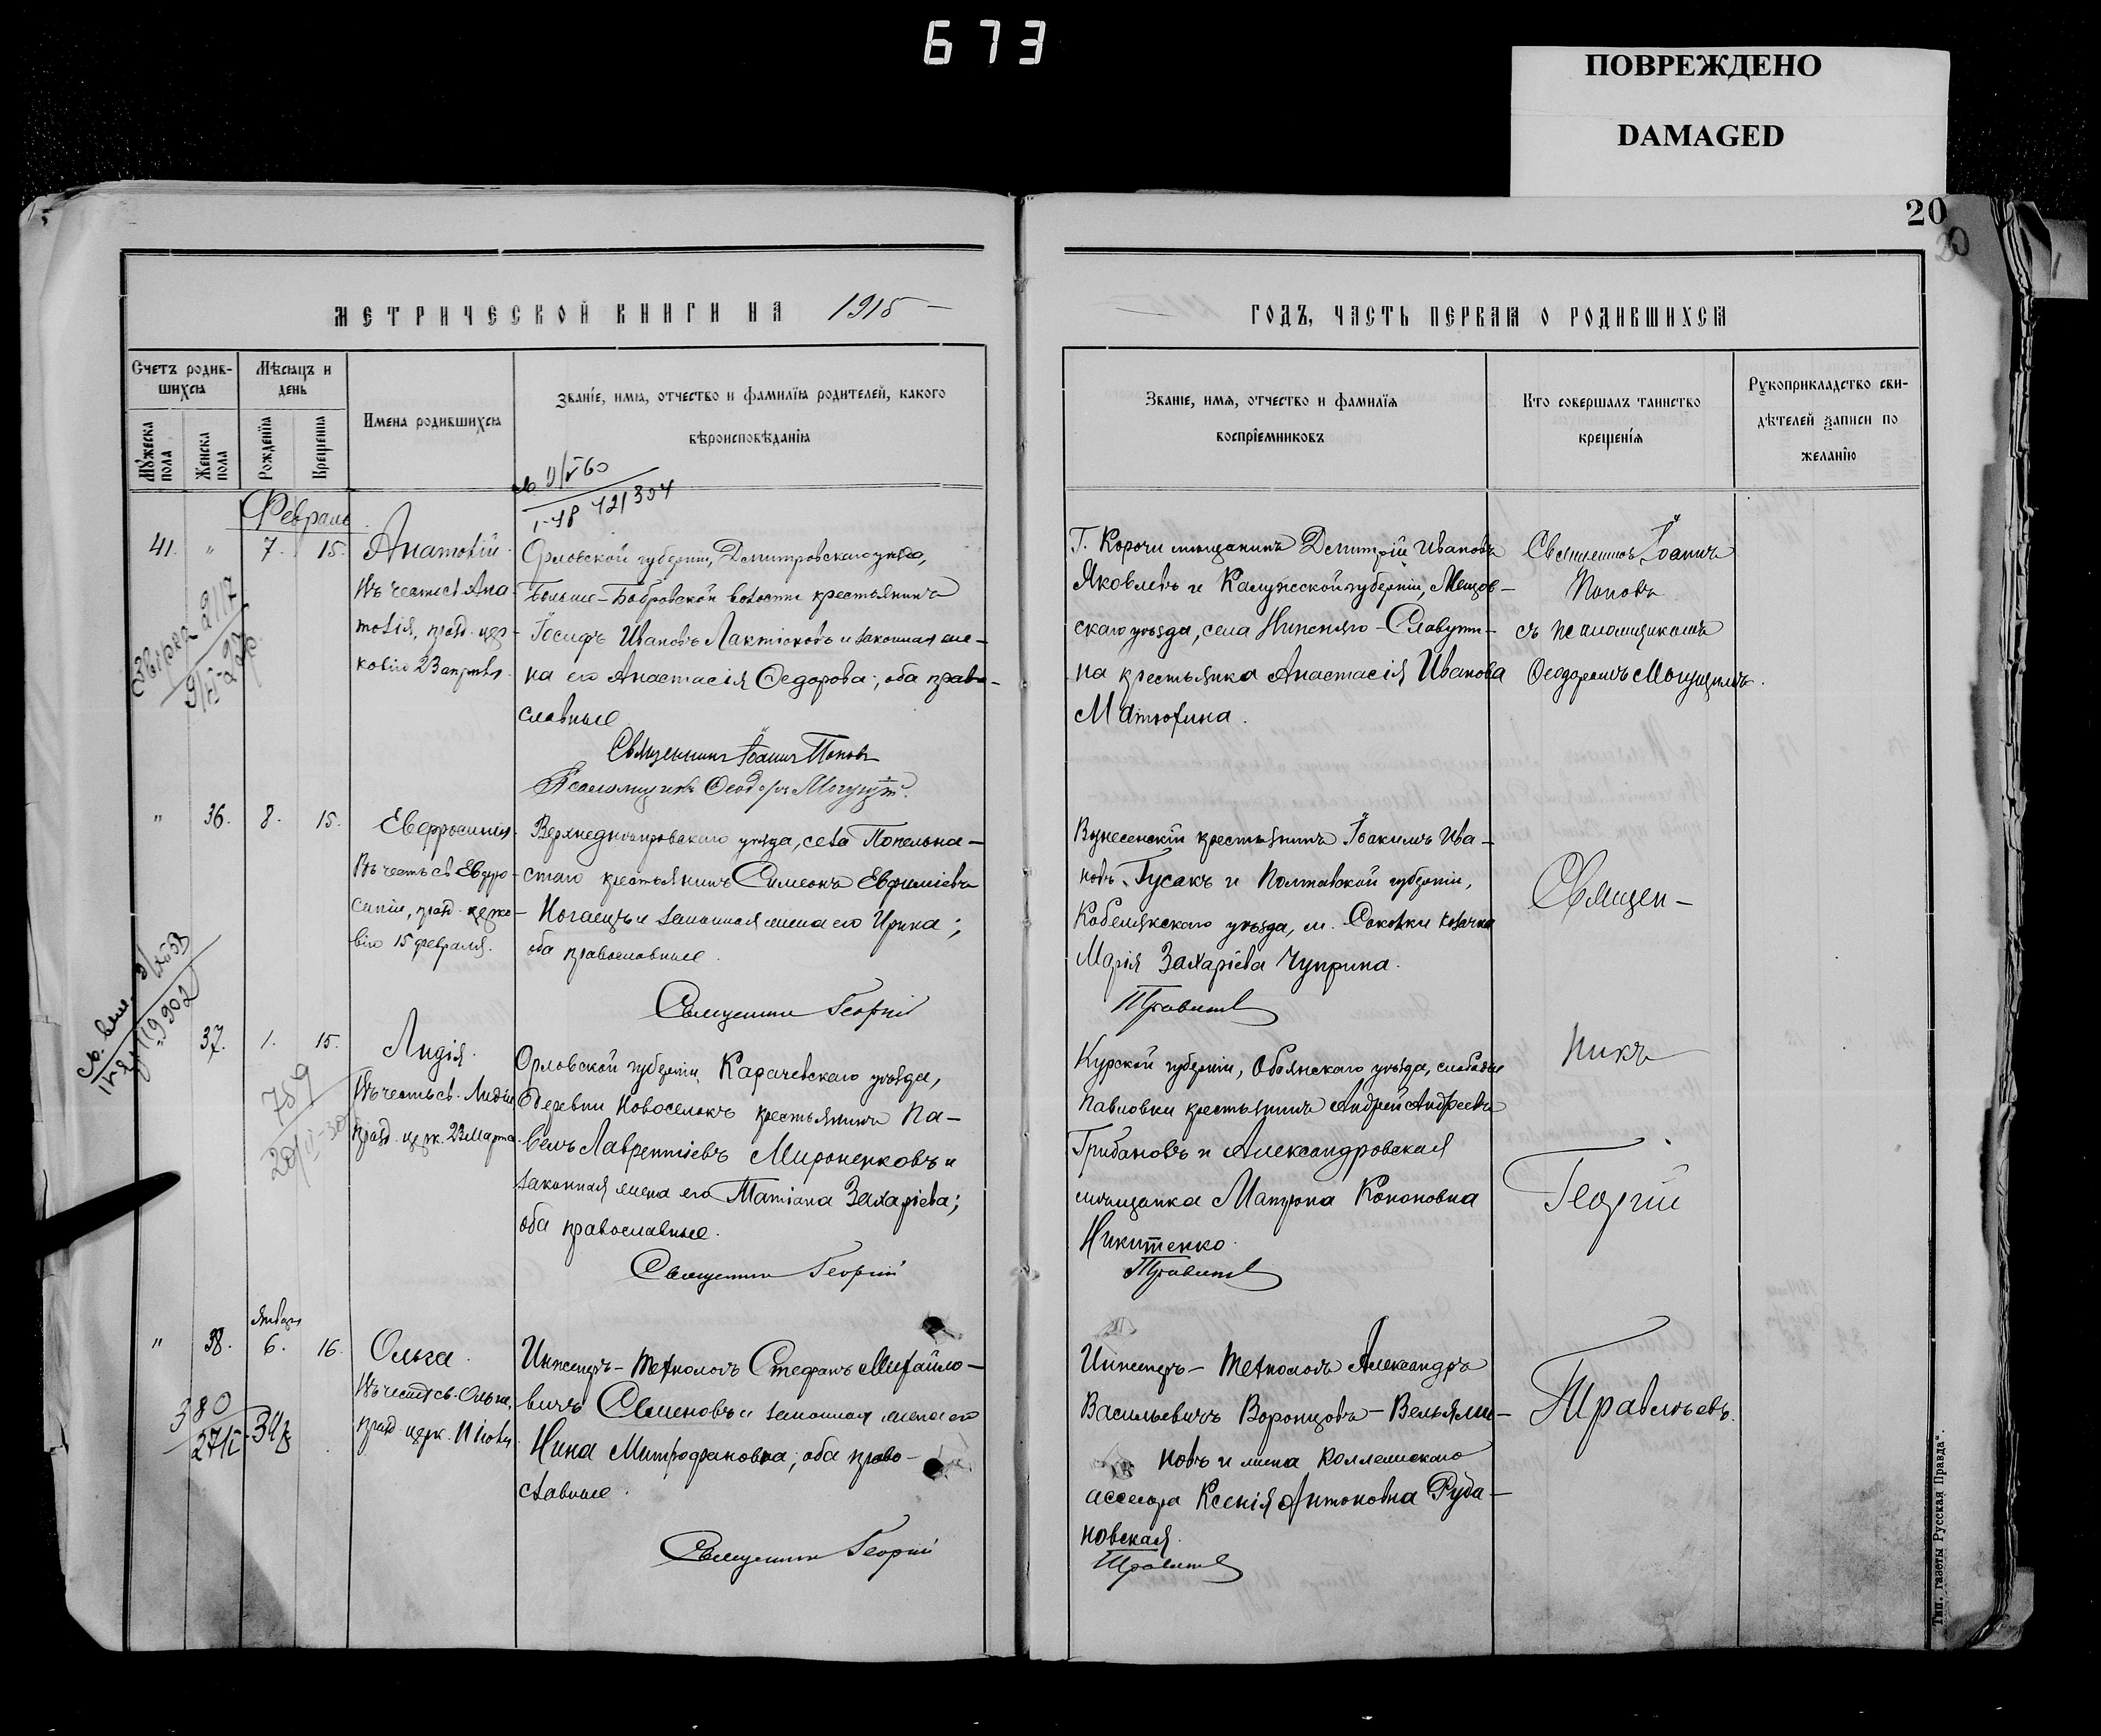 673
ПОВРЕЖДЕНО
DAMAGED
20
20
МЕТРИЧЕСКОЙ КНИГИ НА 1915
ГОДЪ, ЧАСТЬ ПЕРВАЯ О РОДИВШИХСЯ
Счетъ родив-
шихся
Мужеска пола
Женска пола
Мѣсяцъ и
день
Рожденія
Крещенія
Имена родившихся
Званіе, имя, отчество и фамилія родителей, какого
вѣроисповѣданія
Званіе, имя, отчество и фамилія
воспріемниковъ
Кто совершалъ таинство
крещенія
Рукоприкладство сви-
дѣтелей записи по
желанію
Февраль
41. " 7. 15. Анатолій.
Въ честь св Ана-
толія, празд. цер-
ковію 23 апрѣля.
Орловской губерніи, Дмитровскаго уѣзда,
Больше-Бобровской волости крестьянинъ
Іосифъ Ивановъ Лактіоновъ и законная же-
на его Анастасія Ѳедорова; оба право-
славные
Священникъ Іоаннъ Поповъ
Псаломщикъ Ѳеодоръ
Г. Корочи мѣщанинъ Дмитрій Ивановъ
Яковлевъ и Калужской губерніи, Мещов-
скаго уѣзда, села
на крестьянка Анастасія Иванова
Матюхина.
Священникъ Іоаннъ
Поповъ
съ псаломщикомъ
Ѳеодоромъ
" 36. 8. 15. Евфросинія.
Въ честь св Евфро-
синіи, празд. церко-
вію 15 февраля.
Верхнеднѣпровскаго уѣзда, села Попельна-
стаго крестьянинъ Симеонъ Евфиміевъ
Ногаецъ и законная жена его Ирина;
оба православные.
Священникъ Георгій
Вознесенскій крестьянинъ Іоакимъ Ива-
новъ Гусакъ и Полтавской губерніи,
Кобелякскаго уѣзда, м. Соколки козачка
Марія Захаріева Чуприна.
Свящеn-
37. 1. 15. Лидія.
Въ честь св. Лидіи
празд. церк. 23 Марта.
Орловской губерніи, Карачевскаго уѣзда,
деревни Новоселокъ крестьянинъ Па-
велъ Лаврентіевъ Мироненковъ и
законная жена его Татіана Захаріева;
оба православные.
Священникъ Георгій
Курской губерніи, Обоянскаго уѣзда, слободы
Павловки крестьянинъ Андрей Андреевъ
Грибановъ и Александровская
мѣщанка Матрона Кононовна
Никитенко.
никъ
Георгій
Января
" 38. 6. 16. Ольга.
Въ честь св. Ольги,
празд. церк. 11 іюля.
Инженеръ-технологъ Стефанъ Михайло-
вичъ Семеновъ и законная жена его
Нина Митрофановна; оба право-
славные.
Священникъ Георгій
Инженеръ-технологъ Александръ
Васильевичъ Воронцовъ-Вельями-
новъ и жена коллежскаго
ассесора Ксенія Антоновна Руда-
новская.
759
380
Тип. газеты „Русская Правда“.